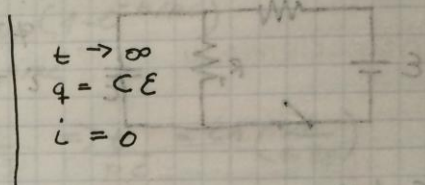 t → ∞
q = C ε
i = 0